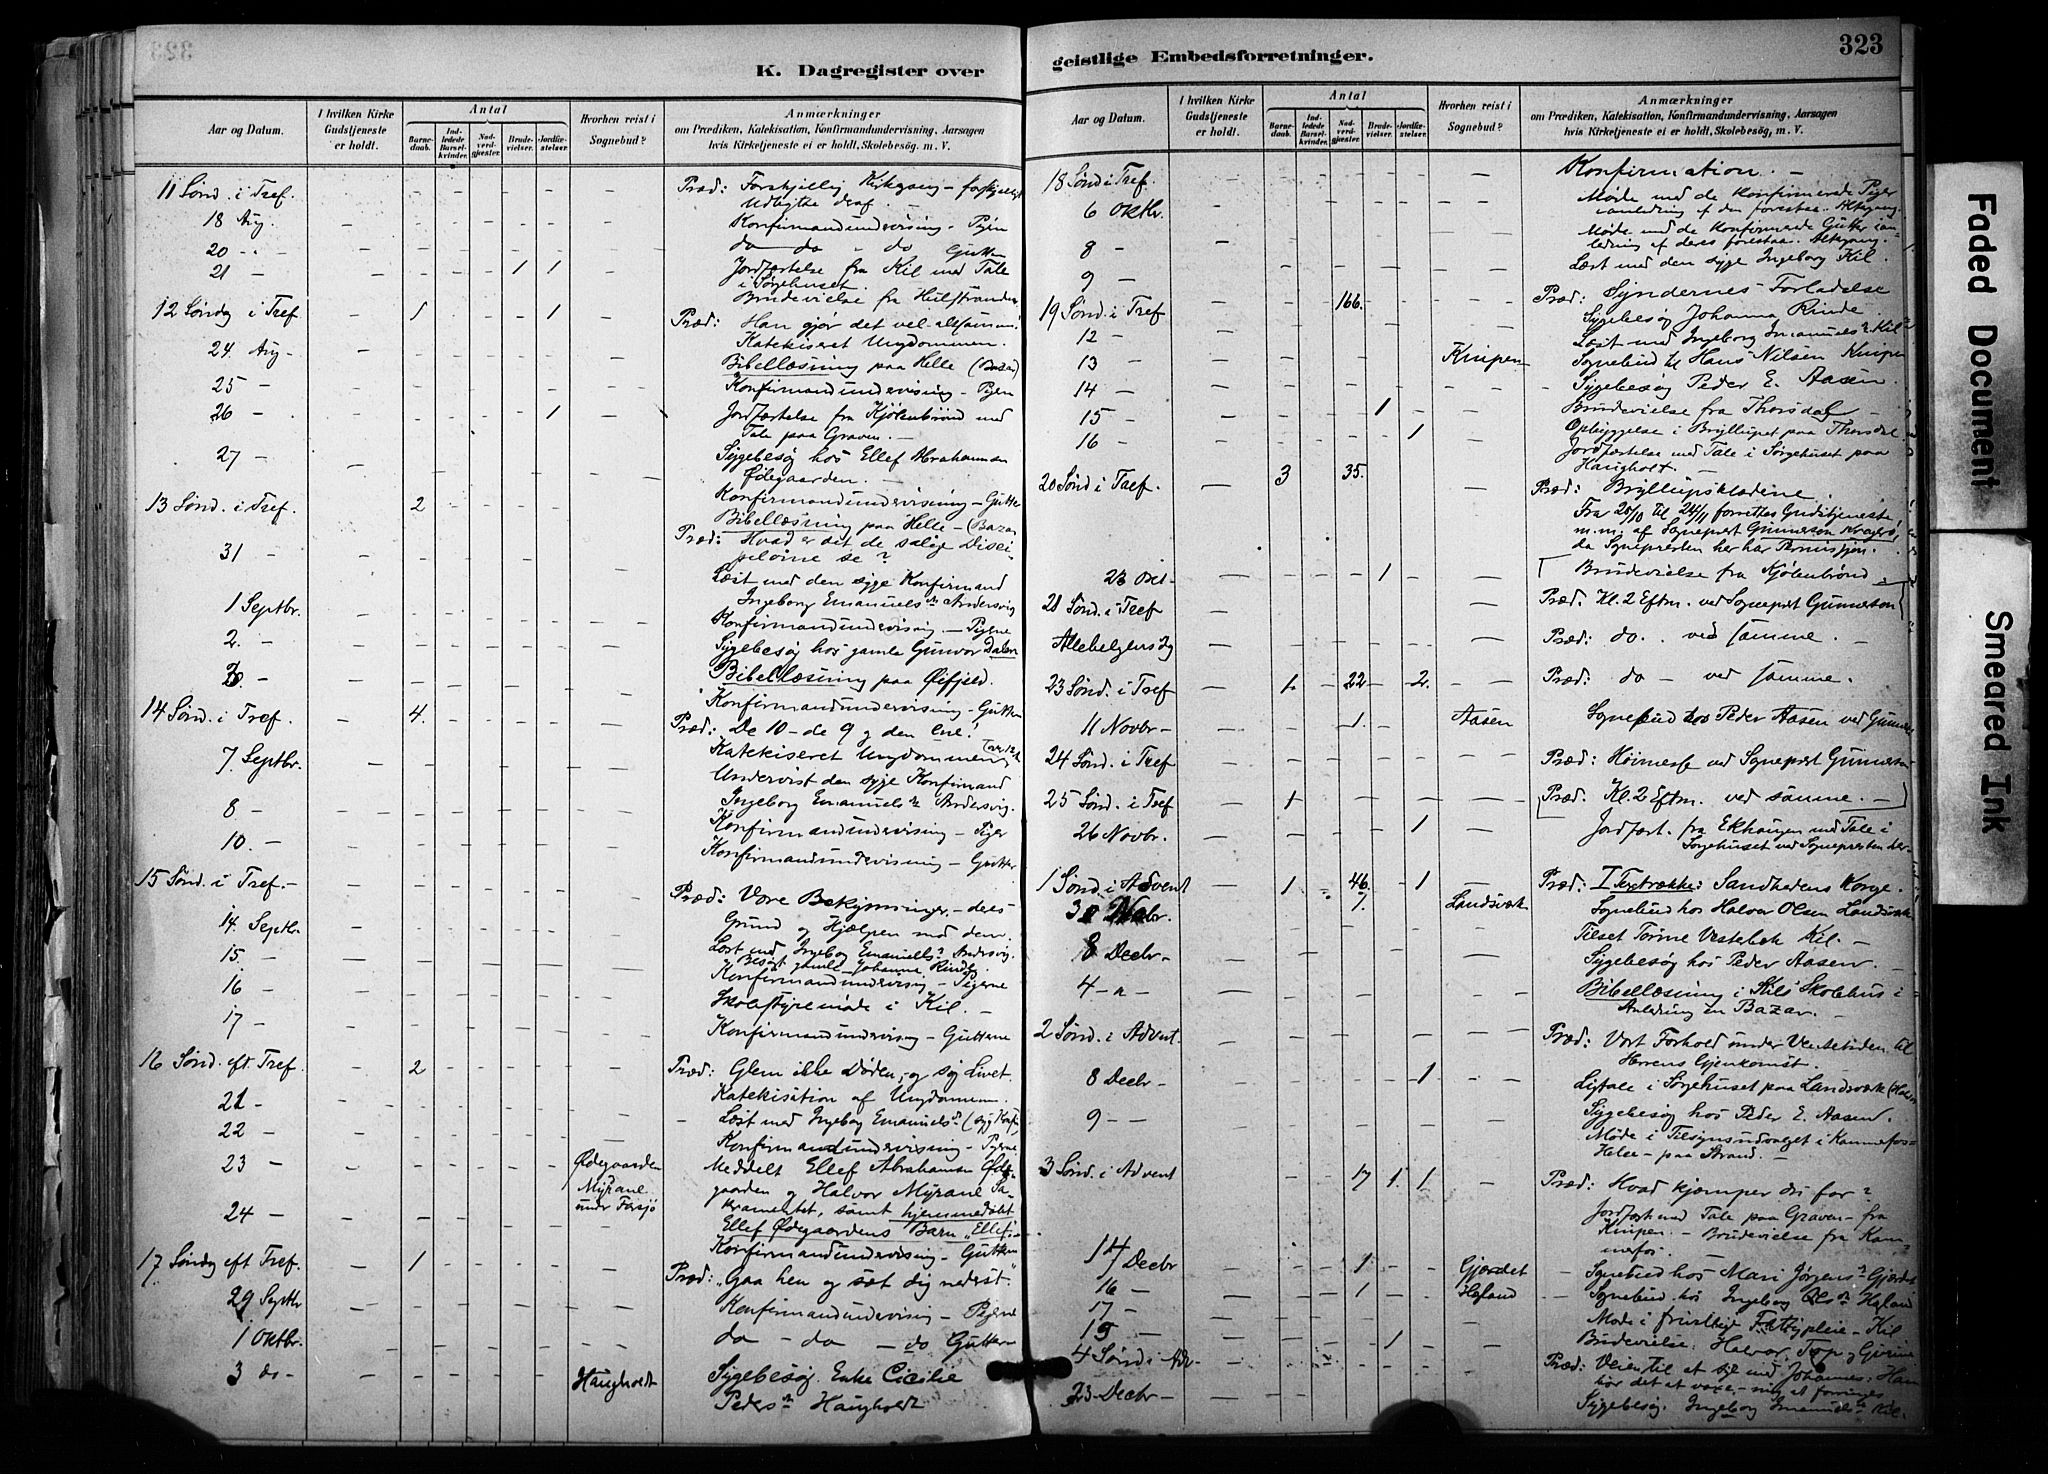 K. Dagregister over
geistlige Embedsforretninger.
323
Aar og Datum.
I hvilken Kirke Gudstjeneste er holdt.
Antal
Barnedaab.
Indledede Barselkvinder.
Nadverdgjæster.
Brudevielser.
Jordfæstelser.
Hvorhen reist i Sognebud?
Anmærkninger
om Prædiken, Katekisation, Konfirmandundervisning, Aarsagen
hvis Kirketjeneste ei er holdt, Skolebesøg. m. V.
11 Sønd. i Tref. Præd: Forskjellig Kirkegang - forskjelligt
Udbytte deraf.
18 Aug. Konfirmandundervisning - Pigerne
20 - do do - do Gutterne
21 - 1 1 Jordfæstelse fra Kil med Tale
i Sørgehuset.
Brudevielse fra
12 Søndag i Tref 1 1 Præd: Han gjør det vel altsammen!
Katekiseret Ungdommen.
24 Aug - Bibellæsning paa Helle (Bazar)
25 - Konfirmandundervisning - Pigerne
26 - 1 Jordfæstelse fra Kjølebrønd med
Tale paa Graven.
27 - Sygebesøg hos Ellef Abrahamsen
Ødegaarden.
Konfirmandundervisning - Gutterne
13 Sønd. i Tref. 2 Bibellæsning paa Helle - (Bazar
Præd: Hvad er det de salige Disci-
plerne se?
31 - Læst med den syge Konfirmand
Ingeborg Emanuelsdr Andersvig
1 Septbr. Konfirmandundervisning - Pigerne
2 - Sygebesøg hos gamle Gunvor Dalen
3. - Bibellæsning paa Øifjeld.
Konfirmandundervisning - Gutterne
14 Sønd. i Tref. 4. Præd: De 10 - de 9 og den ene!
Katekiseret Ungdommen
7. Septbr. Undervist den syge Konfirmand
Ingeborg Emanuelsdr Andersvig.
8 - Konfirmandundervisning - Piger
10. - Konfirmandundervisning - Gutter
15 Sønd. i Tref. - Præd: Vore Bekymringer, - deres
Grund og Hjælpen mod dem.
14. Septbr Læst med Ingeborg Emanuelsdr Andersvig.
15. - Besøgt gamle Johanne Rinde.
Konfirmandundervisning - Pigerne
16 - Skolestyremøde i Kil.
17 - Konfirmandundervisning - Gutterne
16 Sønd. eft. Tref. 2 Præd: Glem ikke Døden, og sig Livet.
21 - Katekisation af Ungdommen.
22 - Læst med Ingeborg Emanuelsdr (syg Konf.)
Konfirmandundervisning - Pigerne
23 - Ødegaarden Meddelt Ellef Abrahamsen Øde-
Myrane gaarden og Halvor Myrane Sa-
24 - under Farsjø kramentet, samt hjemmedøbt
Ellef Ødegaardens Barn "Ellef"
Konfirmandundervisning - Gutterne
17 Søndag eft Tref. 1 Præd: "Gaa hen og sæt dig nederst."
29 Septbr Konfirmandundervisning - Pigerne
1 Oktbr. do - do - do Gutterne
3 do - Haugholdt Sygebesøg. Enke Cicilie
Pedersdr Haugholdt
Aar og Datum.
I hvilken Kirke Gudstjeneste er holdt.
Antal
Barnedaab.
Indledede Barselkvinder.
Nadverdgjæster.
Brudevielser.
Jordfæstelser.
Hvorhen reist i Sognebud?
Anmærkninger
om Prædiken, Katekisation, Konfirmandundervisning, Aarsagen
hvis Kirketjeneste ei er holdt, Skolebesøg, m. V.
18 Sønd i Tref. Konfirmation. -
6 Oktbr. Møde med de konfirmerede Piger
i anledning af den forestaa. Altergang.
8 - Møde med de konfirmerede Gutter i an-
ledning af deres forestaa. Altergang.
9 - Læst med den syge Ingeborg Kil.
19 Sønd. i Tref 166. Præd: Syndernes Forladelse
Sygebesøg Johanna Rinde.
12 - Læst med Ingeborg Emanuelsdr Kil
13 - Knipen Sognebud til Hans Nilsen Knipen
14 - Sygebesøg Peder E. Aasen.
15 - 1 Brudevielse fra Thorsdal
16 - 1 Opbyggelse i Bryllupet paa Thorsdal
Jordfæstelse med Tale i Sørgehuset paa
Haugholt.
20 Sønd i Tref. 3 35. Præd: Bryllupsklædene.
Fra 25/10 til 24/11 forrettes Gudstjeneste
m.m. af Sogneprest Gunnerson Kragerø,
da Sognepresten her har Permission.
Oct - 1 Brudevielse fra Kjølebrønd
21 Sønd. i Tref Præd. Kl. 2 Eftm. ved Sogneprest Gunnerson
Allehelgensdg Præd: do. ved samme.
23 Sønd. i Tref 1. 22 2. Præd: do - ved samme.
11 Novbr - 1. Aasen Sognebud hos Peder Aasen ved Gunners
24 Sønd. i Tref Præd: Høimesse ved Sogneprest Gunnerson
25 Sønd. i Tref 1 Præd. Kl. 2 Eftm. ved samme. -
26 Novbr. 1 Jordfæst. fra Ekhaugen med Tale i
Sørgehuset ved Sognepresten her -
1 Sønd i Advent 1 46. 1 Præd: I Textrække: Sandhedens Konge.
30 Nobr. 7. Landsværk Sognebud hos Halvor Olsen Landsværk
Tilset Tørine Vestebek Kil.
8 Decbr - Sygebesøg hos Peder Aasen.
4 - " - Bibellæsning i Kils Skolehus i
Anledning en Bazar.
2 Sønd. i Advent. Præd: Vort Forhold under Ventetiden til
Herrens Gjenkomst.
8 Decbr - 1 Ligtale i Sørgehuset paa Landsværk
9 - - Sygebesøg hos Peder E. Aasen.
Møde i Tilsynsudvalget i Kammerfos-
Helle - paa Strand.
3 Sønd. i Advent 17 1. 1 Præd: Hvad kjæmper du for?
Jordfæst med Tale paa Graven - fra
Knipen. - Brudevielse fra Kam-
merfos.
14 Decbr 1 Gjerdet Sognebud hos Mari Jørgensdr Gjerdet
16 - 1 Høland Sognebud hos Ingeborg Olsdr Høland
17 - Møde i frivillig Fattigpleie - Kil
19 - 1 Brudevielse: Halvor
4 Sønd i Adv. Præd: Veien til at bli med Johannes: Han
bør det at voxe, - mig at forringes
23 Decbr - Sygebesøg. Ingeborg Emanuelsdr Kil.
Faded Document
Smeared Ink